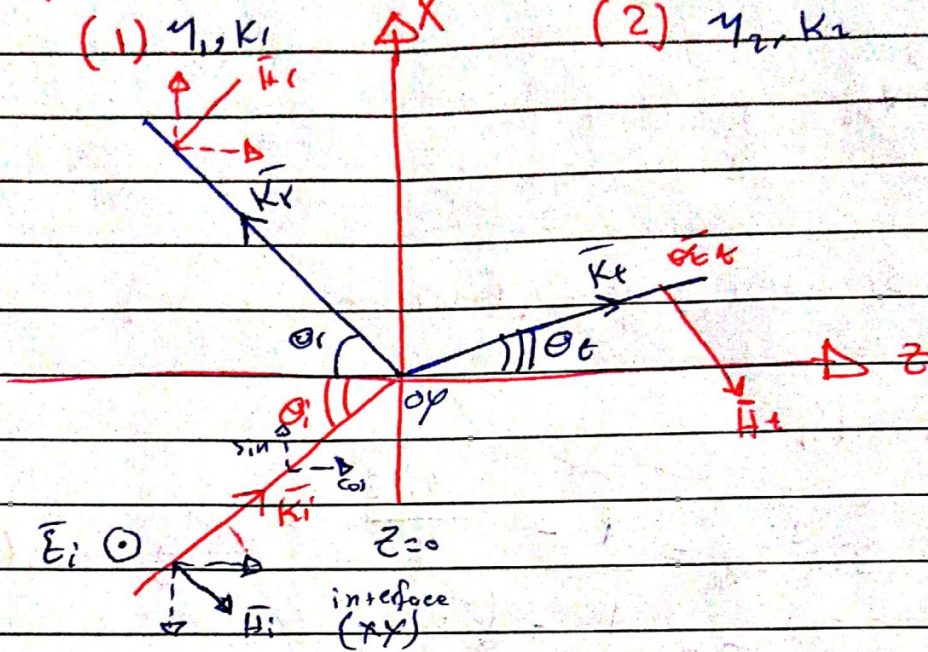 (1) η₁, K₁
X
(2) η₂, K₂
H̄r
K̄r
K̄t
Ēt
θr
θt
Z
θi
oy
H̄t
sin
cos
K̄i
Ēi
Z=0
H̄i
interface
(XY)